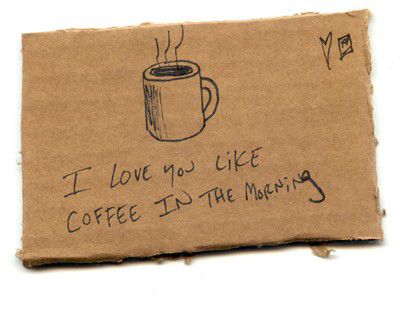 I LOVE YOU LIKE
COFFEE IN THE MORNING